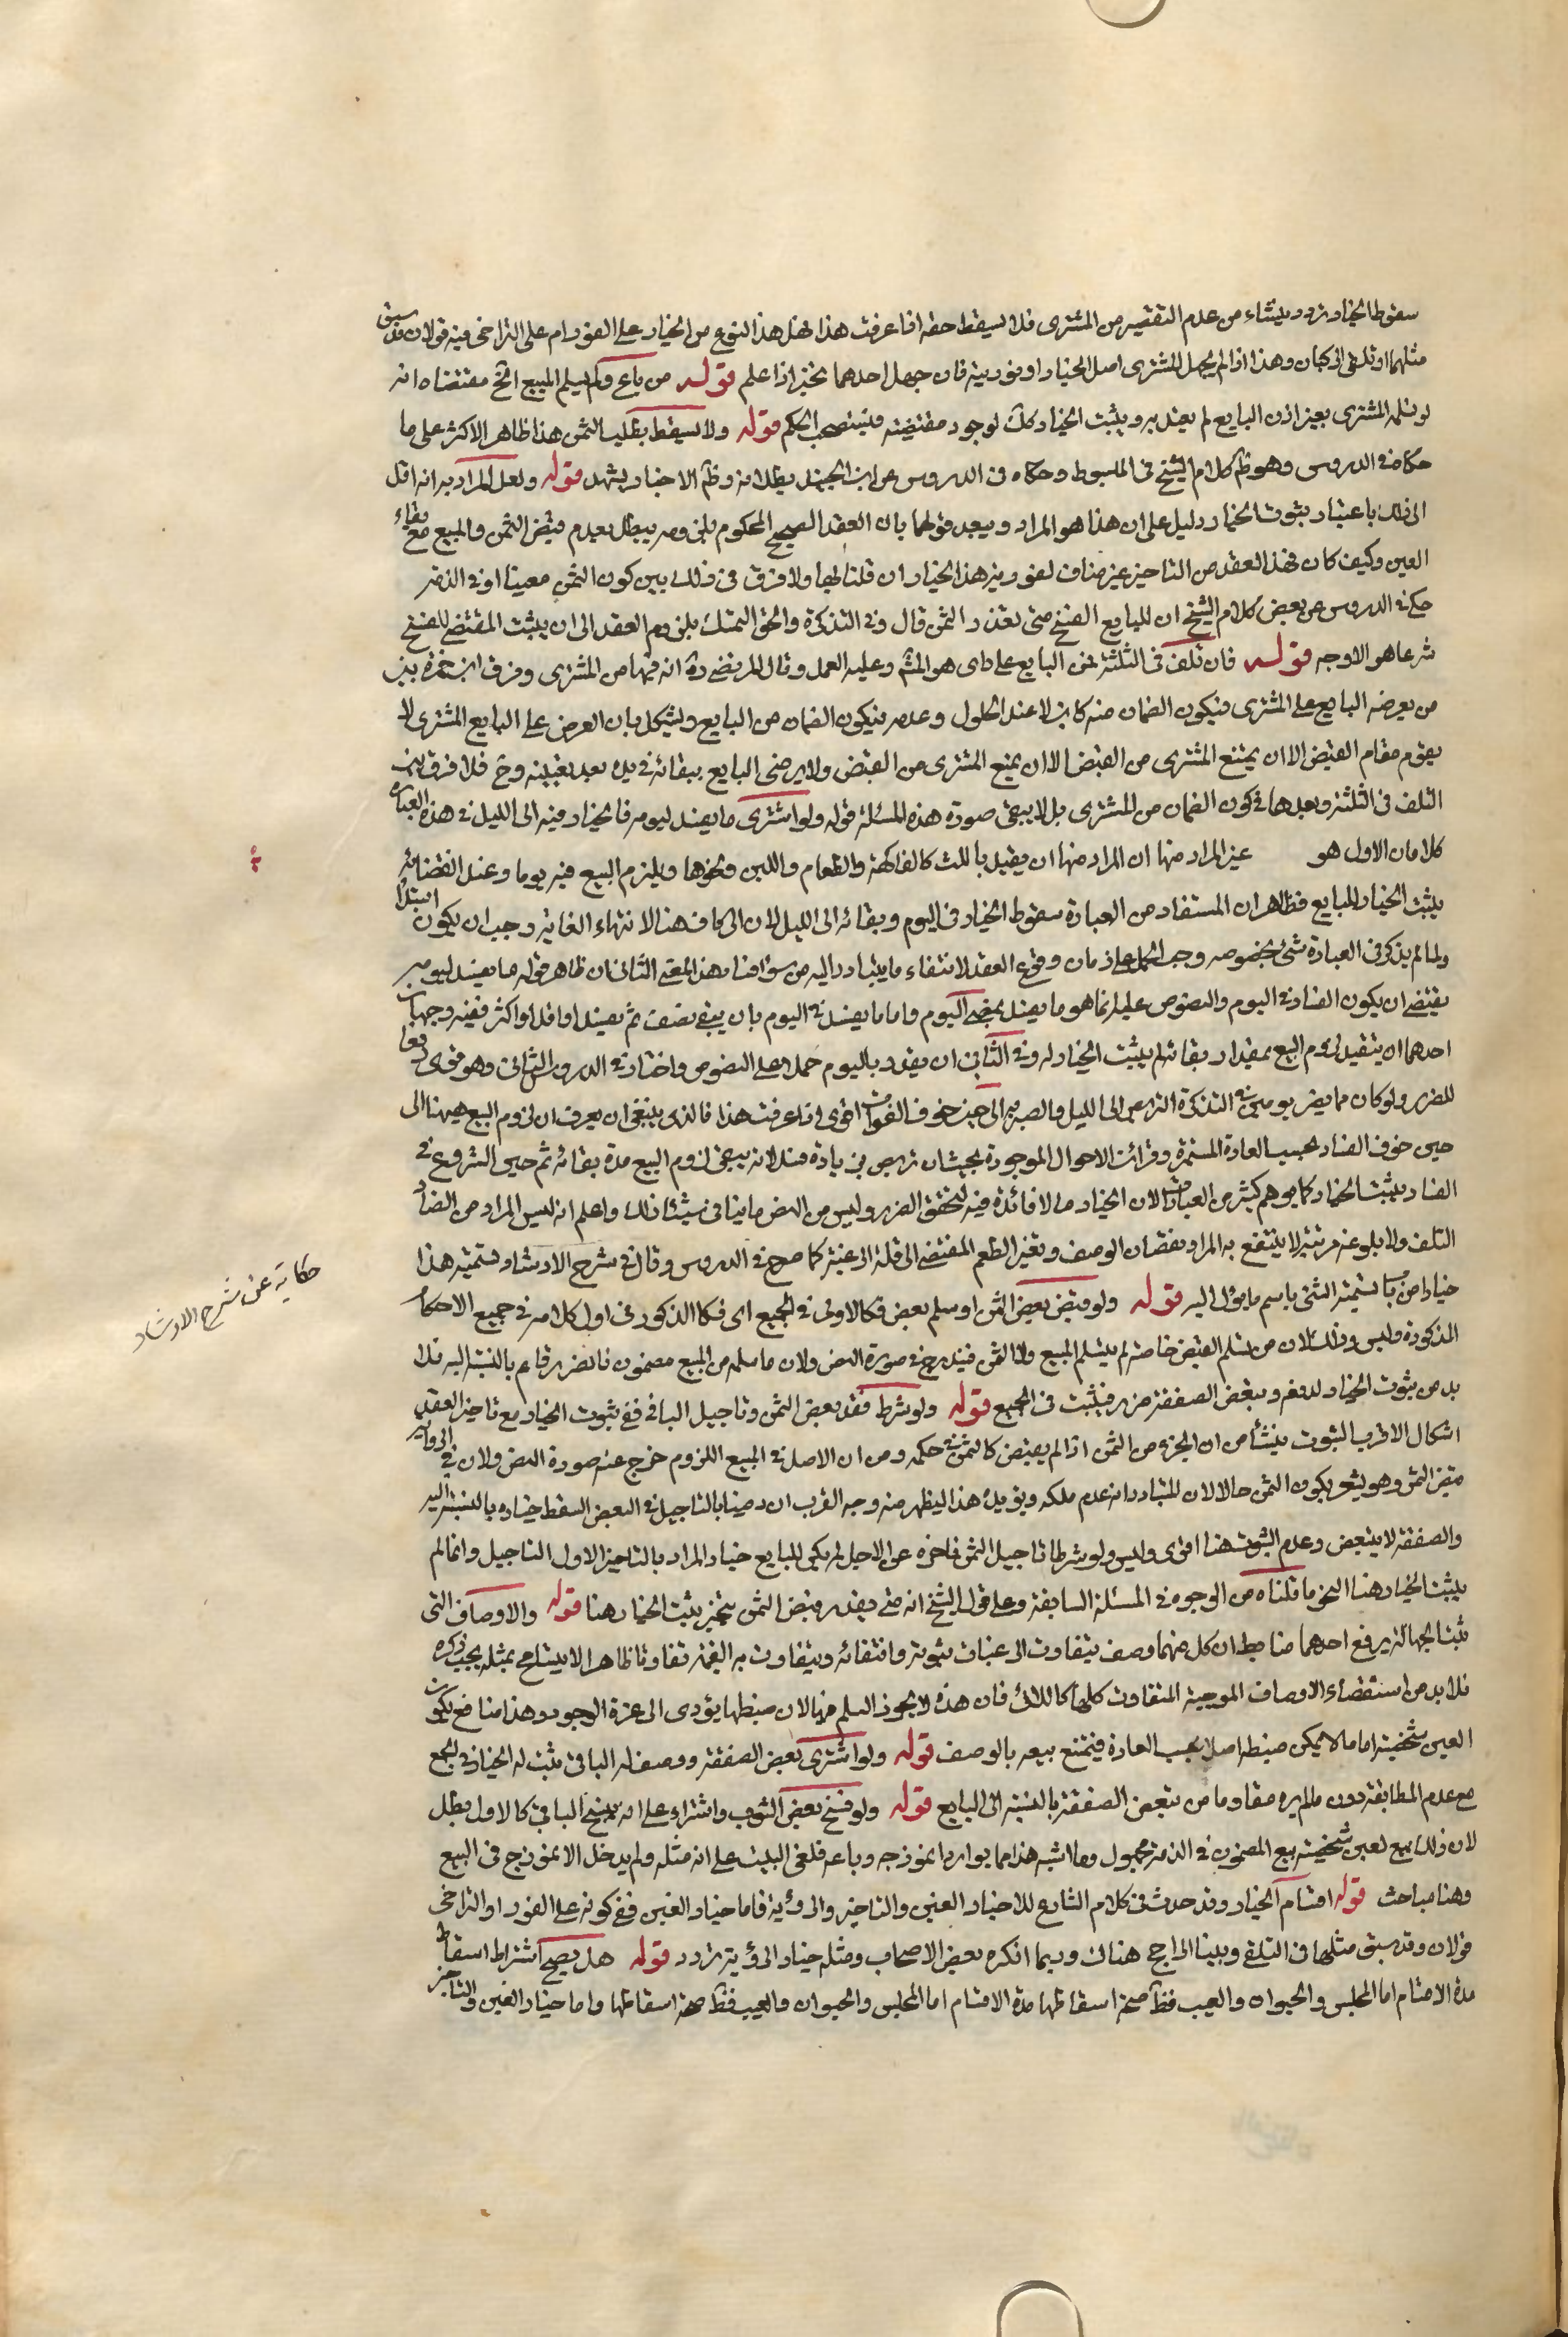 سقوط الخيار تردد ينشاء من عدم التقصير من المشترى فلا يسقط حقه اذا عرفت هذا فهل هذا النوع من الخيار على الفور ام على التراخى فيه قولان قد سبق
مثلهما او تلقى الركبان وهذا اذا لم يجهل المشترى اصل الخيار او فوريته فان جهل احدهما تخير اذا علم قوله من باع ولم يسلم المبيع الخ مقتضاه انه
لو تسلمه المشترى بغير اذن البايع لم يعتد به ويثبت الخيار كك لوجود مقتضيه فيستصحب الحكم قوله ولا يسقط بطلب الثمن هذا ظاهر الاكثر على ما
حكاه فى الدروس وهو ظ كلام الشيخ فى المبسوط وحكاه فى الدروس عن ابن الجنيد بطلانه وظ الاخبار يشهد قوله ولعل المراد به انه اقل
الى ذلك باعتبار ثبوت الخيار دليل على ان هذا هو المراد ويبعد قولهما بان العقد الصحيح المحكوم بلزومه يبطل بعدم قبض الثمن والمبيع مع بقاء
العين وكيف كان فهذا العقد من التاخير غير مناف لفورية هذا الخيار ان قلنا بها ولا فرق فى ذلك بين كون الثمن معينا او فى الذمه
حكى فى الدروس عن بعض كلام الشيخ ان للبايع الفسخ متى تعذر الثمن قال وفى التذكرة والحق التمسك بلزوم العقد الى ان يثبت المقتضى للفسخ
شرعا هو الاوجه قوله فان تلف فى الثلثة فمن البايع على راى هو المش وعليه العمل وقال المرتضى ره انه فيها من المشترى وفرق ابن حمزة بين
من يعرضه البايع على المشترى فيكون الضمان منه كابن لا عند الحلول وعدمه فيكون الضمان من البايع ويشكل بان العرض على البايع المشترى لا
يقوم مقام القبض الا ان يمتنع المشترى من القبض الا ان يمنع المشترى من القبض ولا يرضى البايع ببقائه فى يده بعد تعيينه وح فلا فرق بين
التلف فى الثلثة وبعدها فى كون الضمان من المشترى بل لا يبقى صورة هذه المسئلة قوله ولو اشترى ما يفسد ليومه فالخيار فيه الى الليل فى هذه العبارة
كلامان الاول هو غير المراد منها ان المراد منها ان يقيل بالمث كالفاكهة والطعام واللبن ونحوها ويلزم البيع فيه يوما وعند انقضائه
يثبت الخيار للبايع فظاهر ان المستفاد من العبارة سقوط الخيار فى اليوم وبقائه الى الليل لان الى كاف هنا لانتهاء الغاية وجب ان يكون ابتداء
ولما لم يذكر فى العبارة شئ بخصوصه وجب الحمل على زمان وقوع العقد لانتفاء ما يتبادر اليه من سوا هنا وهذا المعنى الثانى ان ظاهر قوله ما يفسد ليومه
يقتضى ان يكون الفساد فى اليوم والنصوص عليه انما هو ما يفسد بمضى اليوم واما ما يفسد فى اليوم بان يبقى نصف ثم يفسد او اقل او اكثر ففيه وجهان
احدهما ان يتقيد لزوم البيع بمقدار بقائه ثم يثبت الخيار له وفى الثانى ان يقدر باليوم حملا على النصوص واختار فى الدروس الثانى وهو قوى دفعا
للضرر ولو كان مما يضر يومين فى التذكرة التربص الى الليل والصبر الى حين خوف الفوات اقوى وقد عرفت هذا فالذى ينبغى ان يعرف ان لزوم البيع ههنا الى
حين خوف الفساد بحسب العادة المستمرة وقرائن الاحوال الموجودة بحيث ان تربص زيادة فسد لا انه يبقى لزوم البيع مدة بقائه ثم حين الشروع فى
الفساد يثبت الخيار كما يوهم كثير من العبارات لان الخيار ما لا فائدة فيه لتحقق الضرر وليس من النص ما ينافى شيئا ذلك واعلم انه ليس المراد من الفساد
التلف ولا بلوغه مرتبة لا ينتفع به المراد نقصان الوصف وتغير الطعم المفتضى الى قلة الرغبة كما صرح فى الدروس وقال فى شرح الارشاد وتسميته هذا
خيارا من باب تسمية الشئ باسم ما يؤل اليه قوله ولو قبض بعض الثمن او سلم بعض فكالاول فى الجميع اى فكالمذكور فى اول كلامه فى جميع الاحكام
المذكورة وليس وذلك لان من تسلم القبض خاصة لم يتسلم المبيع ولا الثمن فيندرج فى صورة النص ولان ما سلمه من المبيع مضمون فالضرر قائم بالنسبة اليه فلا
بد من ثبوت الخيار لدفعه وتبعض الصفقة ضرر فيثبت فى الجميع قوله ولو شرط نقد بعض الثمن وتاجيل الباقى ففى ثبوت الخيار مع تاخير العقد
اشكال الاقرب الثبوت ينشأ من ان الجزء من الثمن اذا لم يقبض كالثمن فى حكمه ومن ان الاصل فى المبيع اللزوم خرج عنه صورة النص ولان فى الرواية
قبض الثمن وهو يشعر بكون الثمن حالا لان المتبادر انه عدم ملكه ويؤيد هذا ليظهر منه وجه القرب ان رضينا بالتاجيل فى البعض اسقط خياره بالنسبة اليه
والصفقة لا يتبعض وعدم الثبوت هنا اقوى وليس ولو شرطا تاجيل الثمن فاخره عن الاجل لم يكن للبايع خيار المراد بالتاخير الاول التاجيل وانما لم
يثبت الخيار هنا الى نحو ما قلناه من الوجوه فى المسئلة السابقة وعلى قول الشيخ انه متى يقدر قبض الثمن يتخير يثبت الخيار هنا قوله والاوصاف التى
تثبت الجهالة برفع احدهما ضابط ان كل منهما وصف يتفاوت الرغبات بثبوته وانتفائه ويتفاوت به القيمة تفاوتا ظاهرا لا يتسامح بمثله يجب ذكره
فلا بد من استقضاء الاوصاف الموجبة المتفاوت كلها كاللالئ فان هذه لا يجوز السلم فيها لان ضبطها يؤدى الى عزة الوجود وهذا مناف بكون
العين شخصية اما ما لا يمكن ضبطه اصلا بحسب العادة فيمتنع بيعه بالوصف قوله ولو اشترى بعض الصفقة ووصف له الباقى ثبت له الخيار فى الجميع
مع عدم المطابقة دون ما لم يره مقاوما من تبعض الصفقة بالنسبة الى البايع قوله ولو نسج بعض الثوب واشتراه على انه ينسج الباقى كالاول بطل
لان ذلك بيع لعين شخصية بيع المضمون فى الذمة مجهول وما اشبه هذا مما يواردا نموذجه وباعه فلفى البيت على انه مثله ولم يدخل الانموذج فى البيع
وهنا مباحث قوله اقسام الخيار وقد حدث فى كلام الشارع للاخيار الغبن والتاخير والرؤية فاما خيار الغبن ففى كونه على الفور او التراخى
قولان وقد سبق مثلها فى التلقى وبينا الراجح هناك وربما انكره بعض الاصحاب ومثله خيار الرؤية تردد قوله هل يصح اشتراط اسقاط
مدة الاقسام اما المجلس والحيوان والعيب فظ صحة اسقاطها مدة الاقسام اما المجلس والحيوان والعيب فظ صحة اسقاطها واما خيار الغبن والتاخير
حكاية عن شرح الارشاد